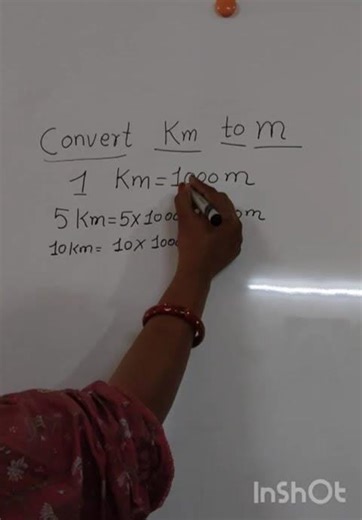 Convert Km to m
1 Km = 1000 m
5 Km = 5 x 1000 m
10 km = 10 x 100
InShOt